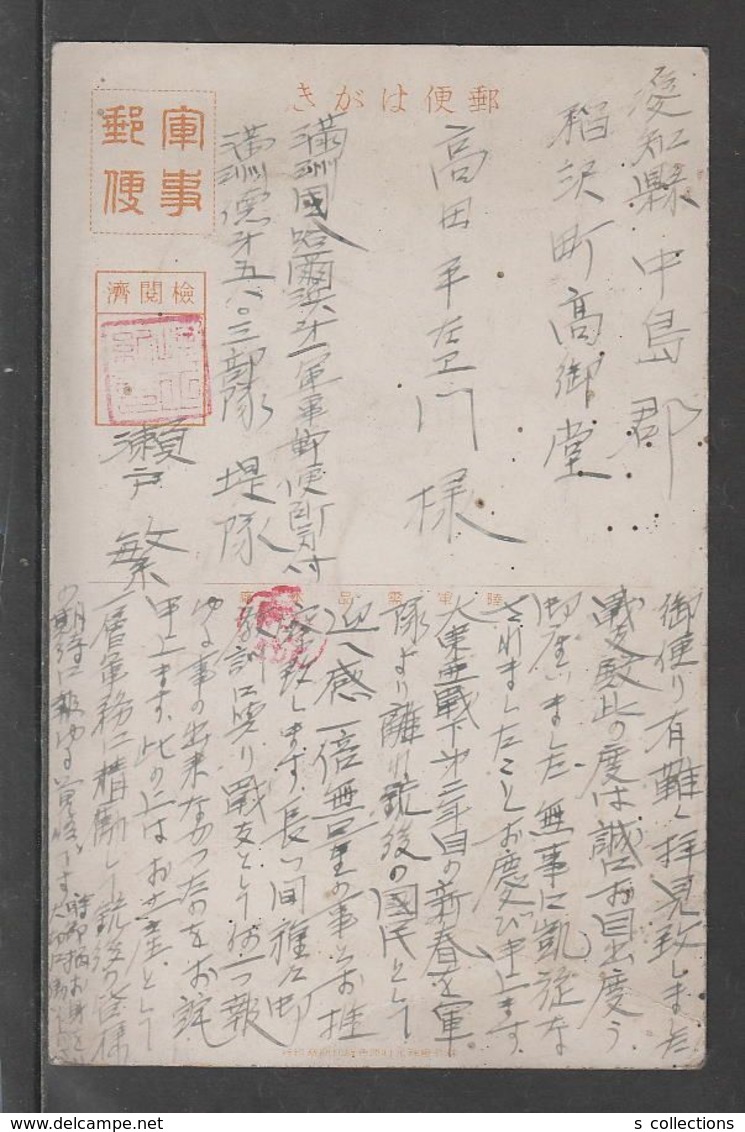 郵便はがき
軍事
郵便
檢閲濟
愛知縣中島郡
稲沢町高御堂
高田平左卫门様
満洲國哈爾浜第一軍事郵便所気付
満洲德第五八〇三部隊堤隊
瀬戸繁
御便り有難く拝見致しました
戦友殿此の度は誠にお目出度う
御座いました無事に凱旋な
されましたことお慶び申上ます
大東亜戦下第二年目の新春を軍
隊より離れ銃後の國民として
迎へ感一倍無量の事とお推
察致します 長い間種々御
教訓に與り戦友として何一つ報
ゆる事の出来なかったのをお詫
申上ます、此の上はお土産として
一層軍務に精勤して銃後の皆様
の期待に報ゆる覚悟です 時節柄お身を
s collections